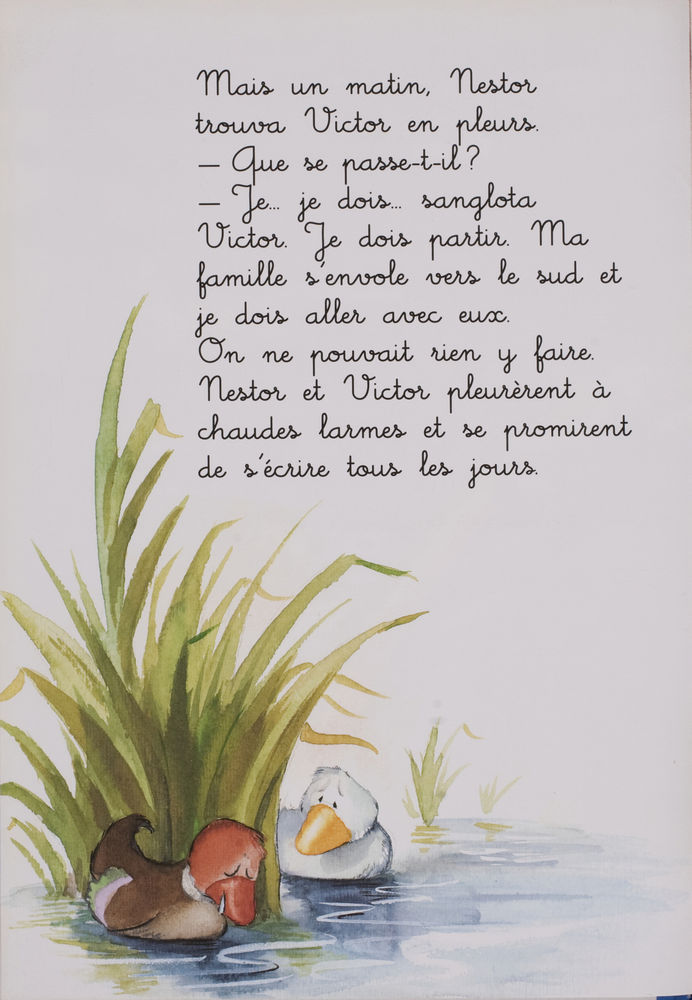 Mais un matin, Nestor
trouva Victor en pleurs.
– Que se passe-t-il ?
– Je... je dois... sanglota
Victor. Je dois partir. Ma
famille s'envole vers le sud et
je dois aller avec eux.
On ne pouvait rien y faire.
Nestor et Victor pleurèrent à
chaudes larmes et se promirent
de s'écrire tous les jours.